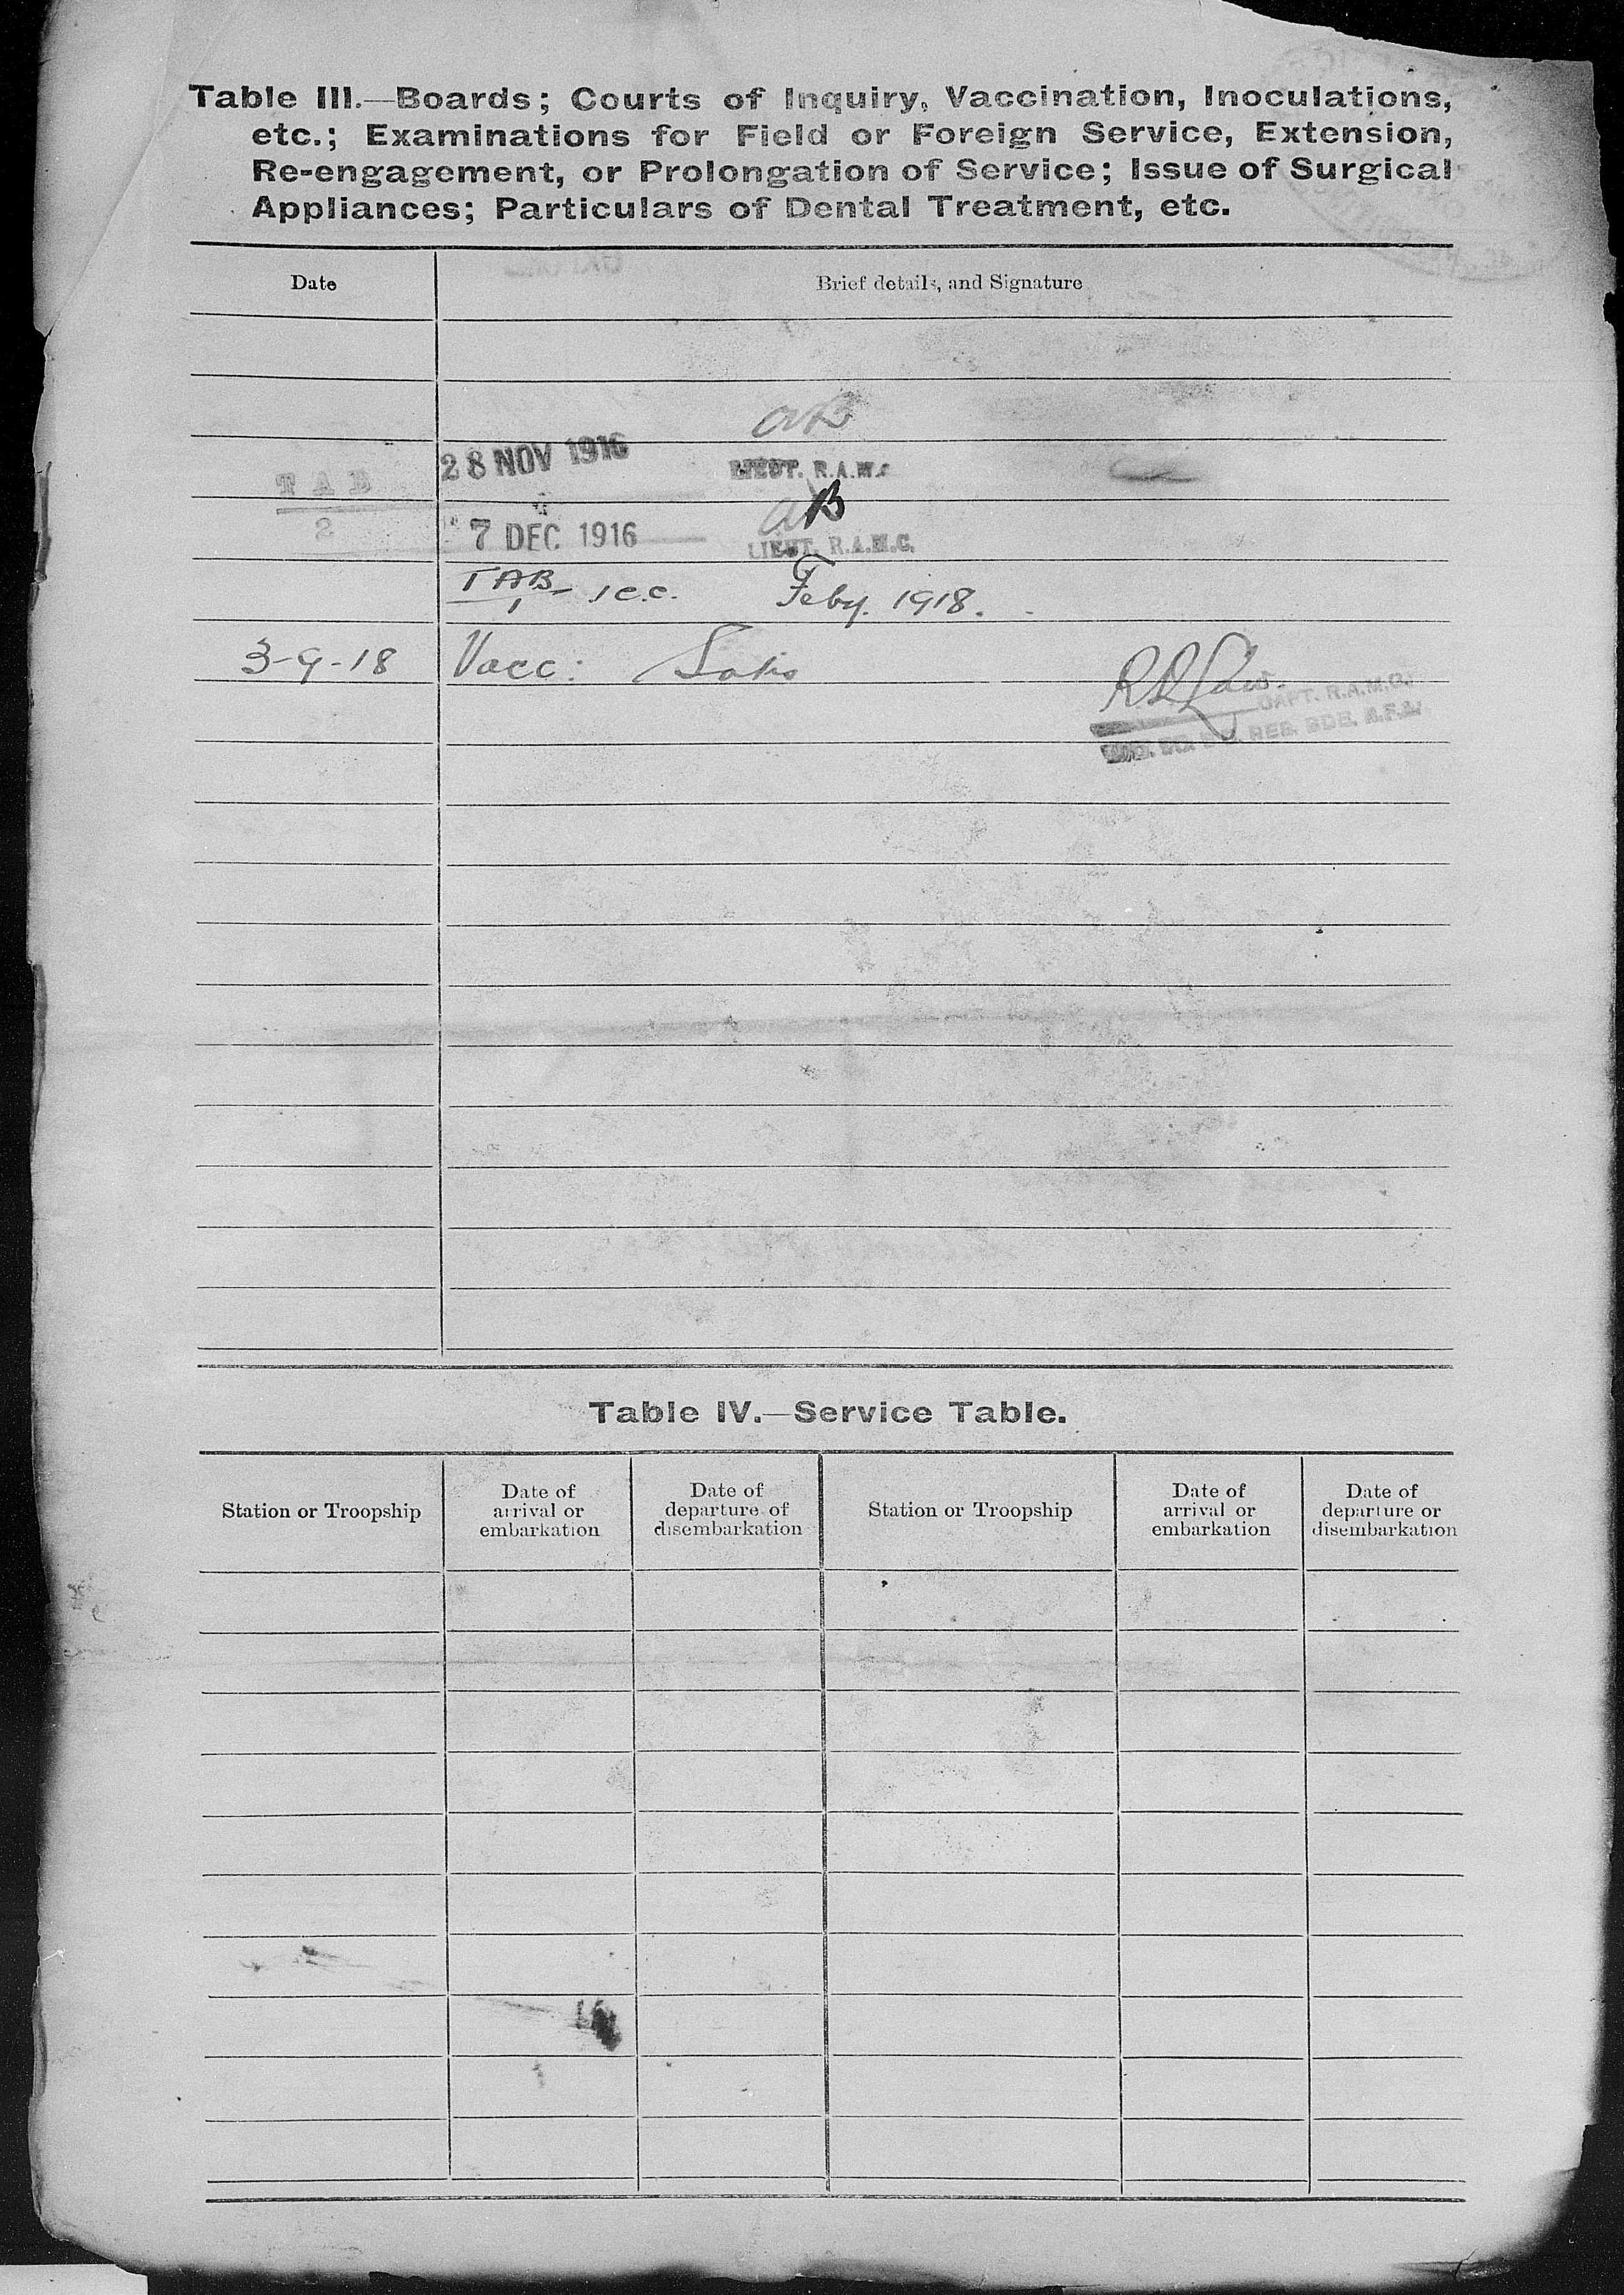 Table III.—Boards; Courts of Inquiry, Vaccination, Inoculations,
etc.; Examinations for Field or Foreign Service, Extension,
Re-engagement, or Prolongation of Service; Issue of Surgical
Appliances; Particulars of Dental Treatment, etc.
Date Brief details, and Signature
AB
28 NOV 1916 LIEUT. R.A.M.C.
TAB
2
AB
7 DEC 1916 LIEUT. R.A.M.C.
TAB
1 1 c.c. Feby. 1918.
3-9-18 Vacc: Satis
CAPT. R.A.M.C.
RES. BDE. R.F.A.
Table IV.—Service Table.
Station or Troopship Date of arrival or embarkation Date of departure of disembarkation Station or Troopship Date of arrival or embarkation Date of departure or disembarkation